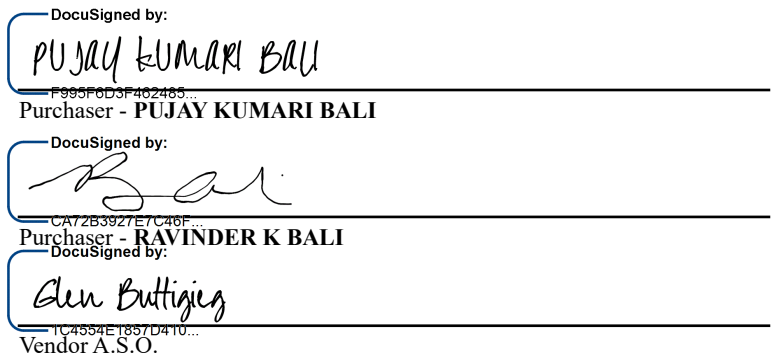 DocuSigned by:
PUJAY KUMARI BALI
F995F6D3F462485...
Purchaser - PUJAY KUMARI BALI
DocuSigned by:
Bali
CA72B3927E7C46F...
Purchaser - RAVINDER K BALI
DocuSigned by:
Glen Buttigieg
1C4554E1857D410...
Vendor A.S.O.